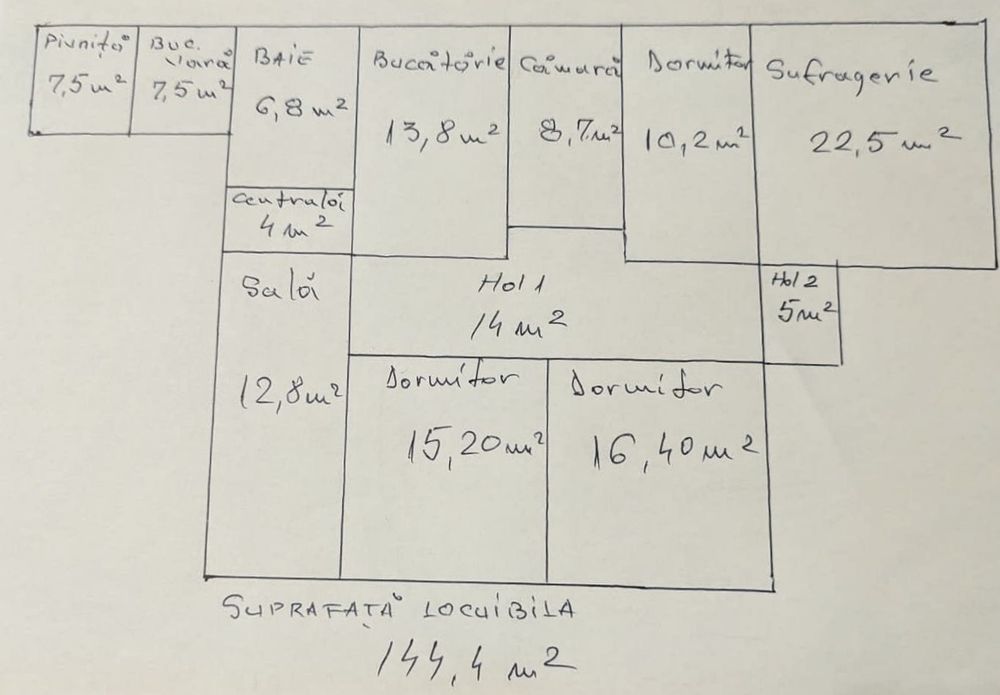 Pivniță
7,5 m²
Buc.
Vară
7,5 m²
BAIE
6,8 m²
Bucătărie
13,8 m²
Cămară
8,7 m²
Dormitor
10,2 m²
Sufragerie
22,5 m²
centrală
4 m²
Sală
12,8 m²
Hol 1
14 m²
Hol 2
5 m²
Dormitor
15,20 m²
Dormitor
16,40 m²
SUPRAFAȚĂ LOCUIBILA
144,4 m²